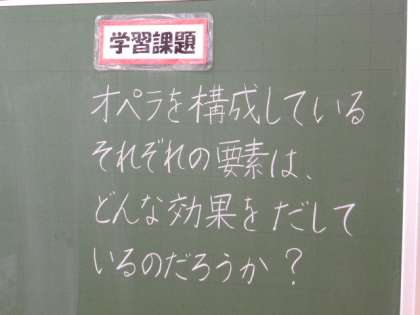 学習課題
オペラを構成している
それぞれの要素は、
どんな効果をだして
いるのだろうか？